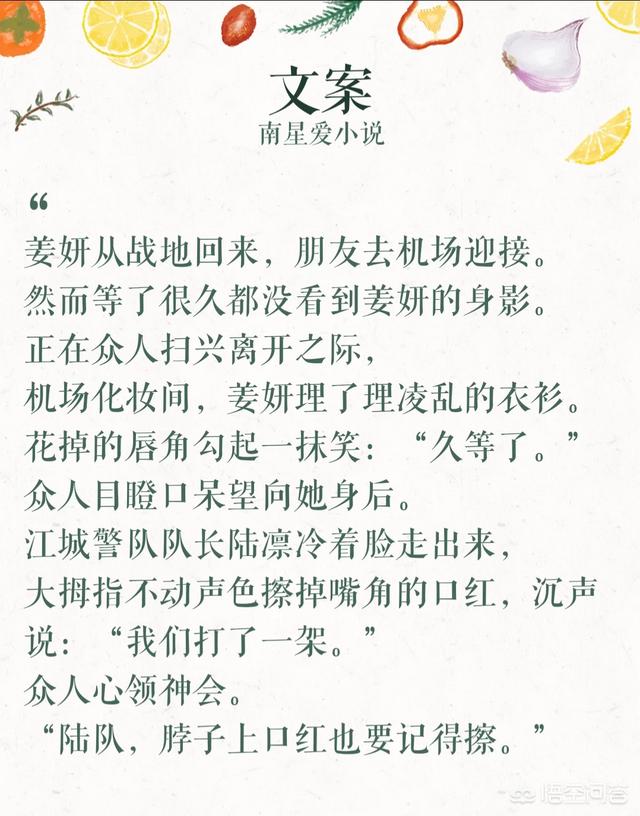 文案
南星爱小说
“
姜妍从战地回来，朋友去机场迎接。
然而等了很久都没看到姜妍的身影。
正在众人扫兴离开之际，
机场化妆间，姜妍理了理凌乱的衣衫。
花掉的唇角勾起一抹笑：“久等了。”
众人目瞪口呆望向她身后。
江城警队队长陆凛冷着脸走出来，
大拇指不动声色擦掉嘴角的口红，沉声
说：“我们打了一架。”
众人心领神会。
“陆队，脖子上口红也要记得擦。”
悟空问答